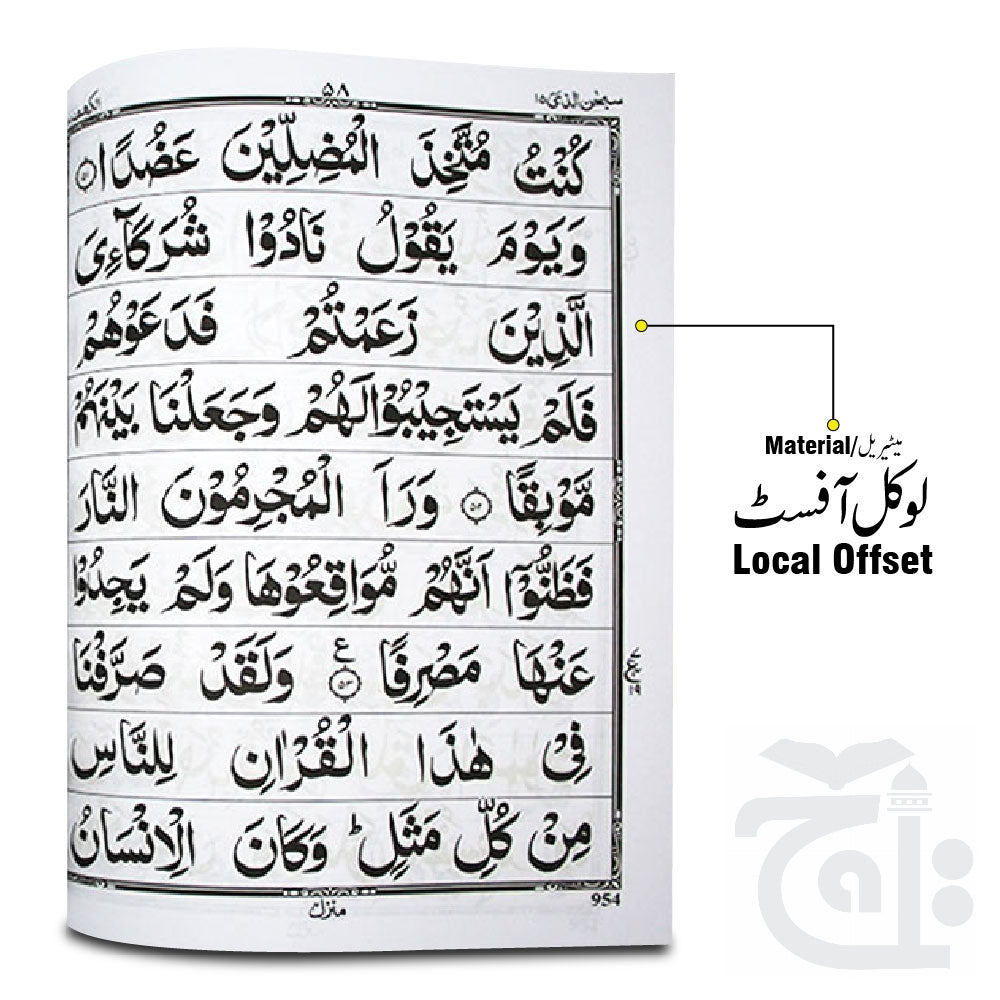 سبحٰن الذی ۱۵
۵۸
الکهف
كُنْتُ مُتَّخِذَ الْمُضِلِّيْنَ عَضُدًا ۵۱
وَيَوْمَ يَقُوْلُ نَادُوْا شُرَكَآءِىَ
الَّذِيْنَ زَعَمْتُمْ فَدَعَوْهُمْ
فَلَمْ يَسْتَجِيْبُوْا لَهُمْ وَجَعَلْنَا بَيْنَهُمْ
مَّوْبِقًا ۵۲ وَرَاَ الْمُجْرِمُوْنَ النَّارَ
فَظَنُّوْٓا اَنَّهُمْ مُّوَاقِعُوْهَا وَلَمْ يَجِدُوْا
عَنْهَا مَصْرِفًا ۵۳ ع وَلَقَدْ صَرَّفْنَا
فِىْ هٰذَا الْقُرْاٰنِ لِلنَّاسِ
مِنْ كُلِّ مَثَلٍ ؕ وَكَانَ الْاِنْسَانُ
منزل
954
Material/میٹیریل
لوکل آفسٹ
Local Offset